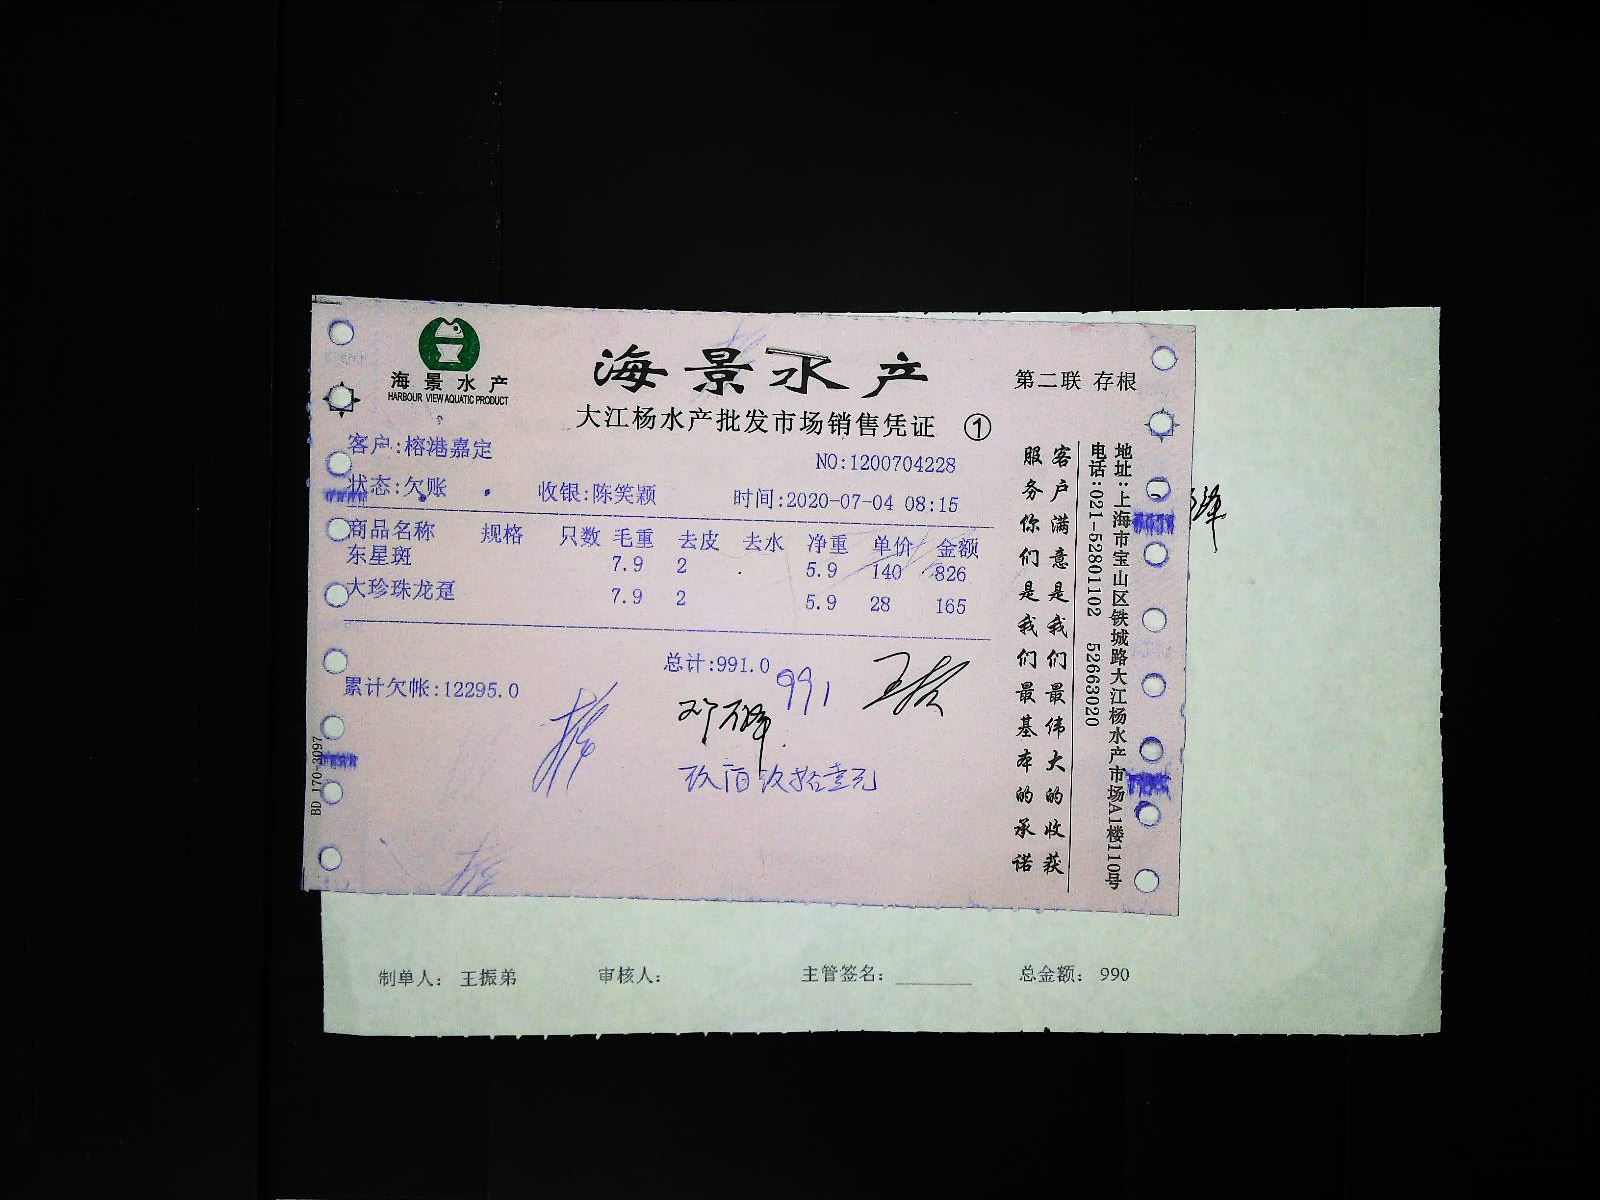 海景水产
HARBOUR VIEW AQUATIC PRODUCT
海景水产
第二联 存根
大江杨水产批发市场销售凭证 ①
客户:榕港嘉定
NO:1200704228
状态:欠账 收银:陈笑颖 时间:2020-07-04 08:15
商品名称 规格 只数 毛重 去皮 去水 净重 单价 金额
东星斑 7.9 2 5.9 140 826
大珍珠龙趸 7.9 2 5.9 28 165
总计:991.0
991
累计欠帐:12295.0
玖佰玖拾壹元
客户满意是我们最伟大的收获
服务你们是我们最基本的承诺
地址:上海市宝山区铁城路大江杨水产市场A1楼110号
电话:021-52801102 52663020
BD 170-3097
制单人: 王振弟 审核人: 主管签名: 总金额: 990